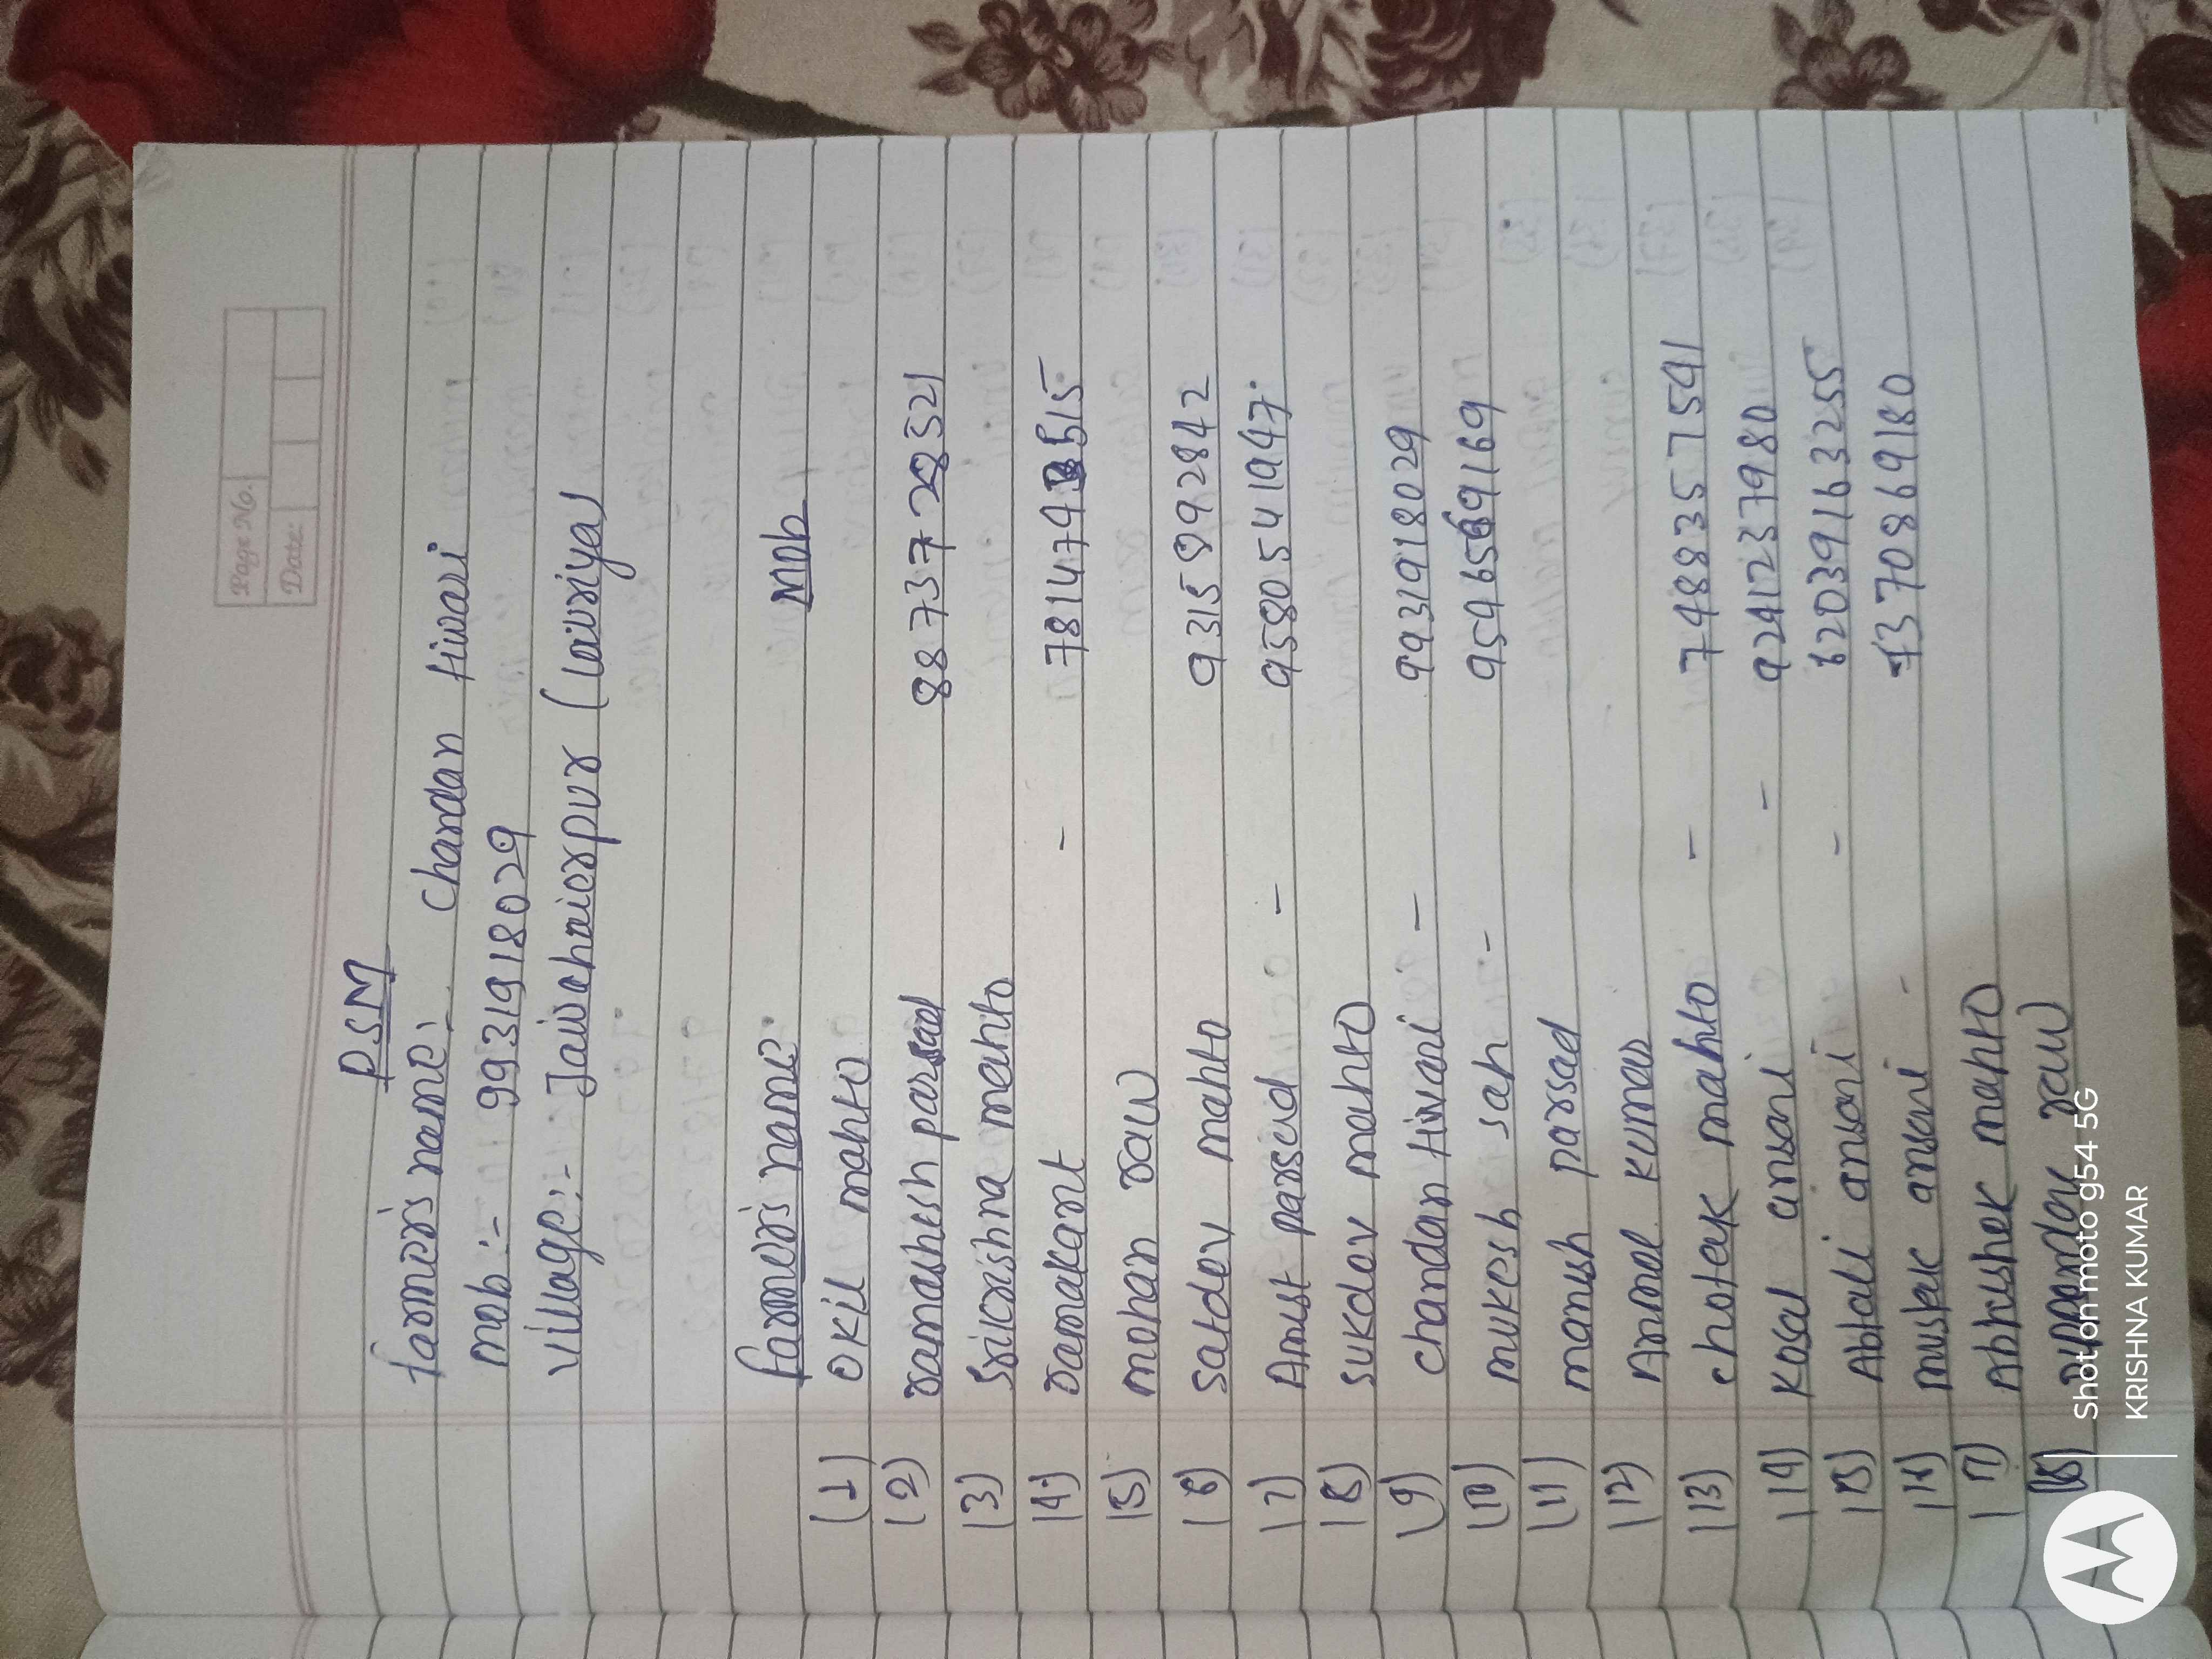 PSM
farmer's name:- Chandan tiwari
mob :- 9931918029
village:- Jaiw chaiorpur (Lauriya)
farmer's name:- Mob
(1) okil mahto
(2) ramashesh parsad 8873772 8521
(3) Srikrishna mahto
(4) ramakant - 781474 3615
(5) mohan raw
(6) satdev mahto 9315992842
(7) Amist parsad - 9580541947
(8) sukdev mahto
(9) Chandan tiwari - 9931918029
(10) mukesh sah - 9546569169
(11) manish parsad
(12) Anmol kumar
(13) chotak mahto - 7488357541
(14) Kosal ansari - 9241237980
(15) Abtali ansari - 6203916325
(16) mustak ansari - 7370869180
(17) Abhishek mahto
(18) raw
Page No.
Date:
Shot on moto g54 5G
KRISHNA KUMAR